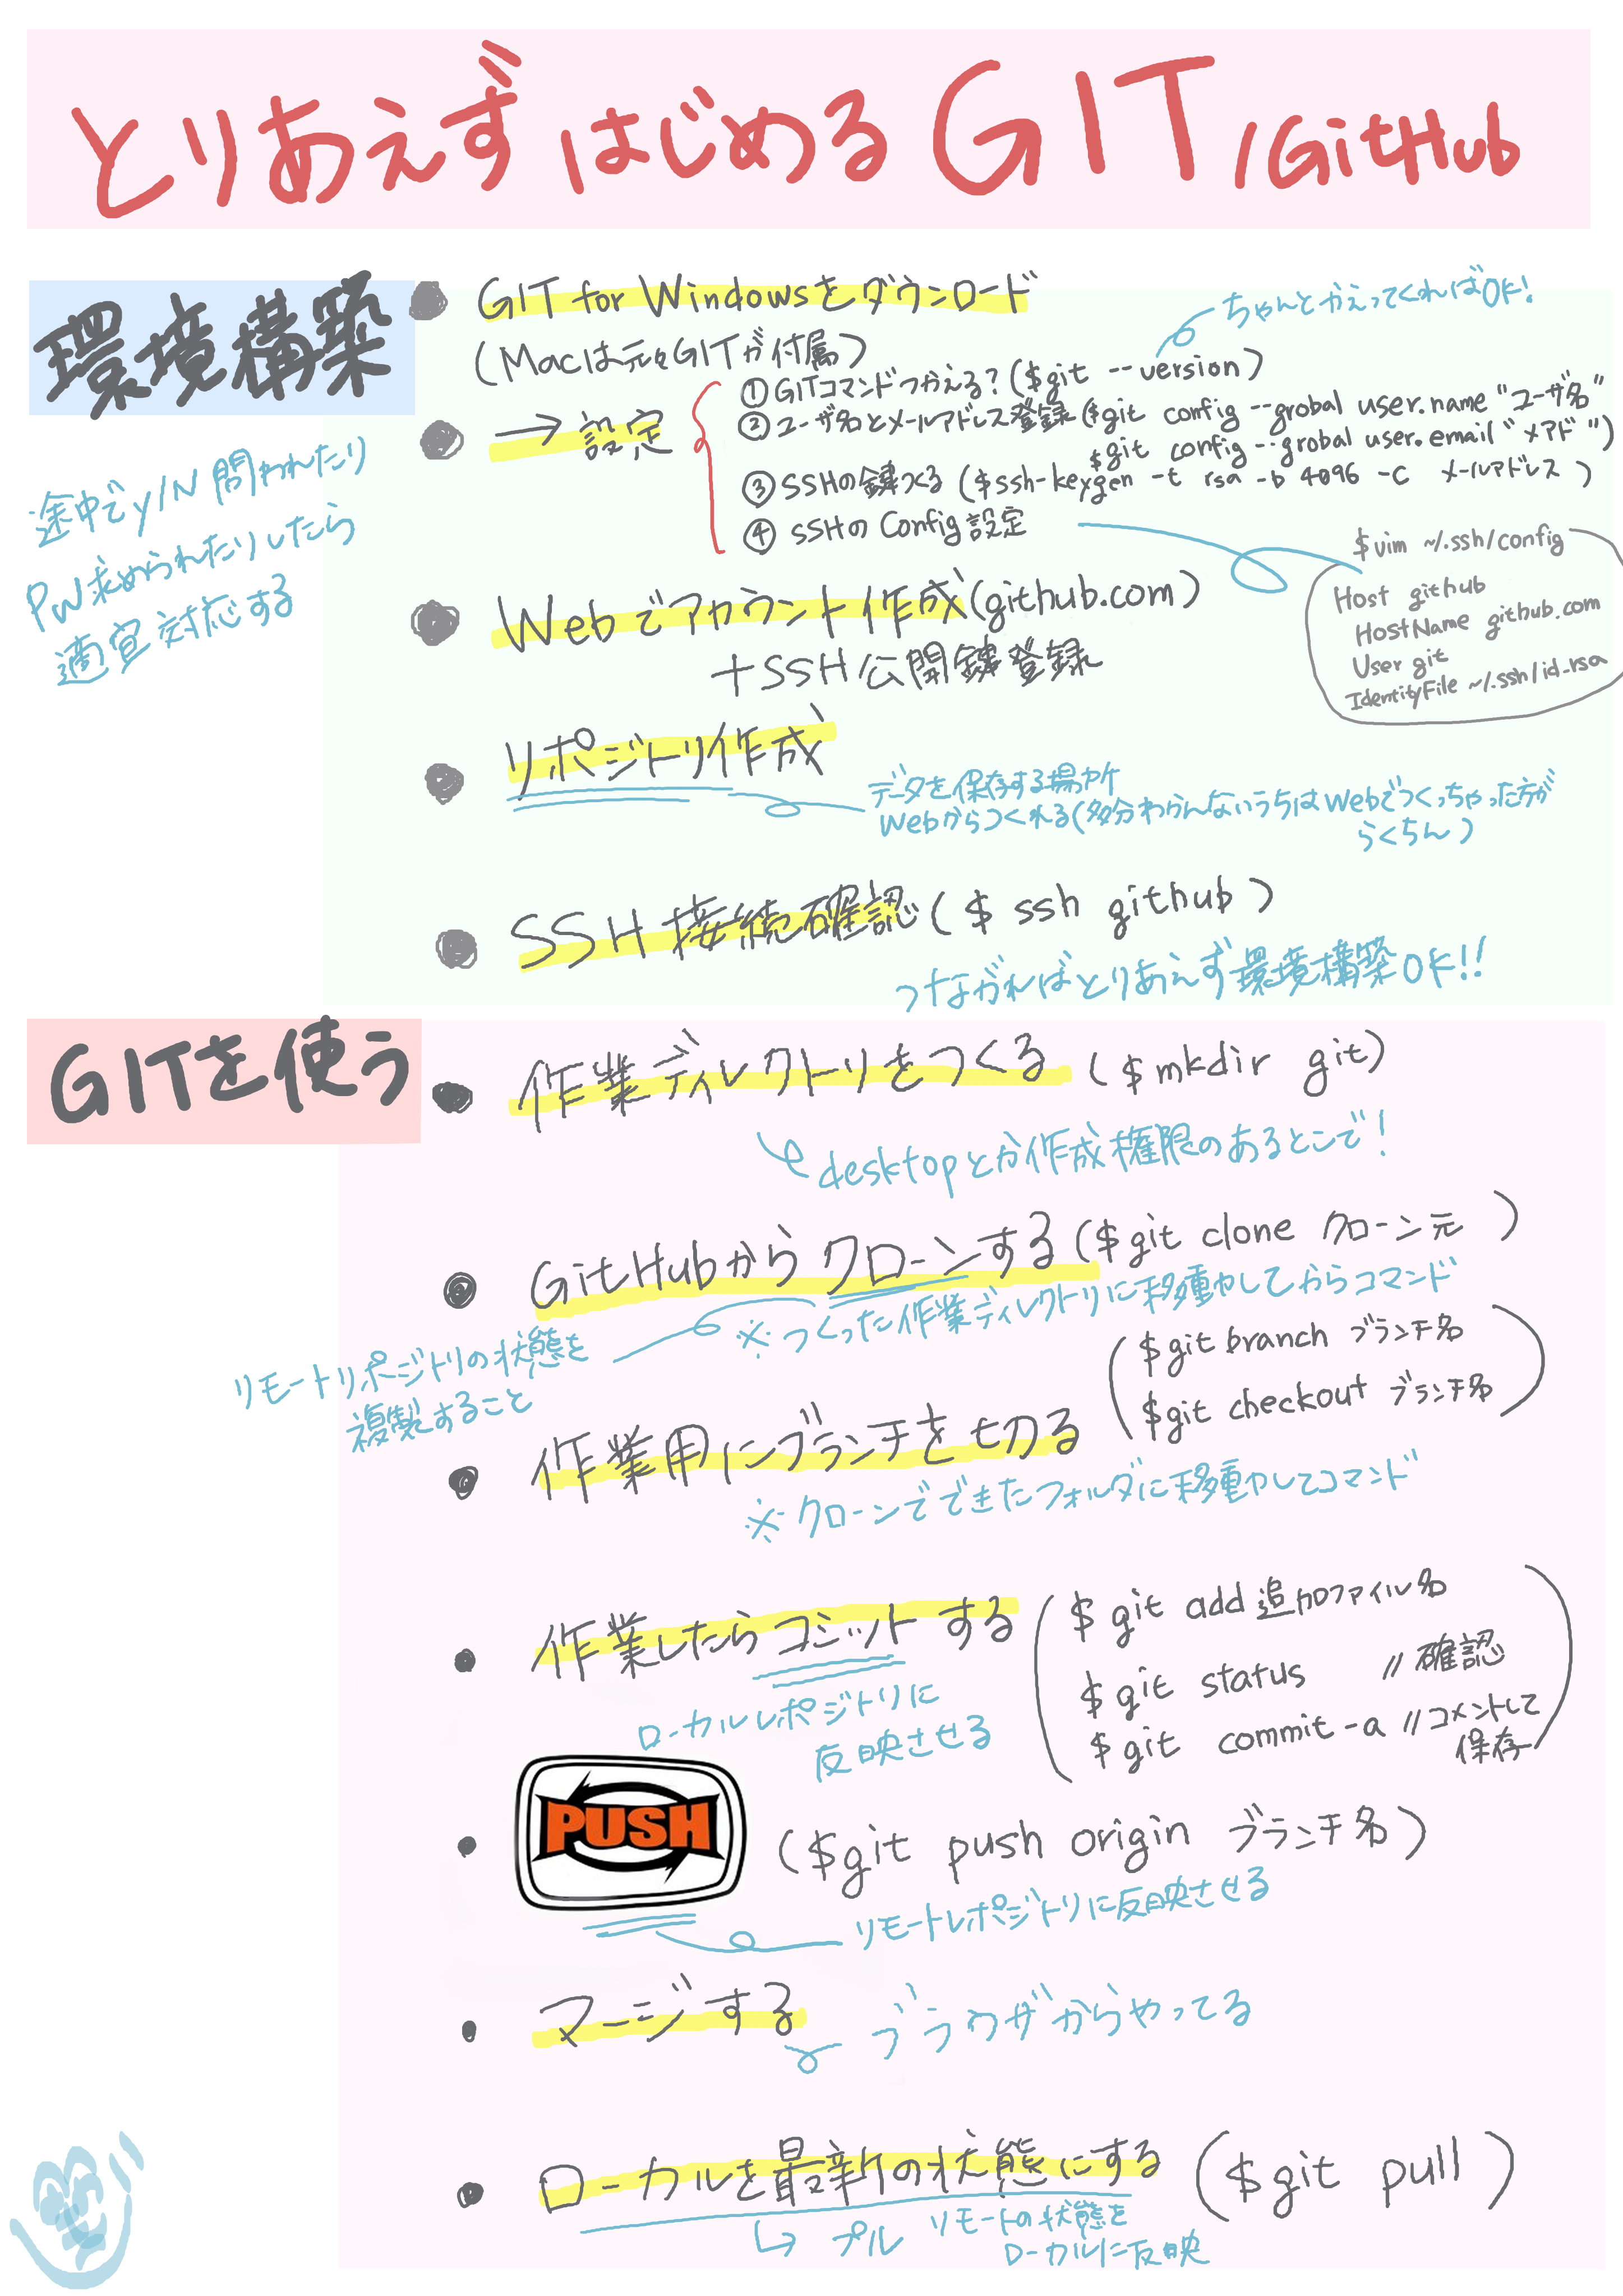 とりあえずはじめるGIT/GitHub
環境構築
途中でy/N問われたり
PW求められたりしたら
適宜対応する
● GIT for Windowsをダウンロード
(Macは元々GITが付属)
ちゃんとかえってくればOK!
● → 設定
① GITコマンドつかえる?($git --version)
② ユーザ名とメールアドレス登録($git config --grobal user.name "ユーザ名"
$git config --grobal user.email "メアド")
③ SSHの鍵つくる($ssh-keygen -t rsa -b 4096 -C メールアドレス)
④ SSHのConfig設定
$vim ~/.ssh/config
Host github
HostName github.com
User git
IdentityFile ~/.ssh/id_rsa
● Webでアカウント作成(github.com)
+SSH公開鍵登録
● リポジトリ作成
データを保存する場所
Webからつくれる(多分わらんないうちはWebでつくっちゃった方が
らくちん)
● SSH接続確認($ ssh github)
つながればとりあえず環境構築OK!!
GITを使う
● 作業ディレクトリをつくる($mkdir git)
desktopとか作成権限のあるとこで!
● GitHubからクローンする($git clone クローン元)
※つくった作業ディレクトリに移動してからコマンド
リモートリポジトリの状態を
複製すること
● 作業用にブランチを切る
($git branch ブランチ名
$git checkout ブランチ名)
※クローンでできたフォルダに移動してコマンド
● 作業したらコミットする
($ git add 追加ファイル名
$ git status //確認
$ git commit -a //コメントして
保存)
ローカルレポジトリに
反映させる
● PUSH ($git push origin ブランチ名)
リモートレポジトリに反映させる
● マージする
ブラウザからやってる
● ローカルを最新の状態にする($git pull)
↳ プル リモートの状態を
ローカルに反映